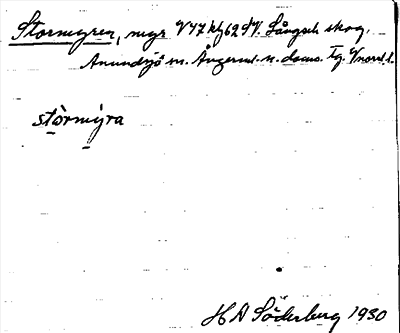 Stormyren, myr V47 kf62 SV. Långsele skog,
Anundsjö sn. Ångerml. n. doms. Tg. V norrl. l.
stòrmýra
H A Söderberg 1930